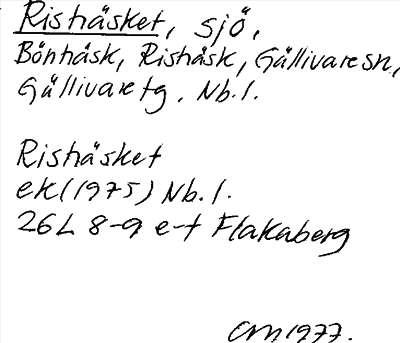 Rishäsket, sjö,
Bönhäsk, Rishäsk, Gällivare sn,
Gällivare tg. Nb. l.
Rishäsket
ek(1975) Nb. l.
26L 8-9 e-f Flakaberg
CM 1977.